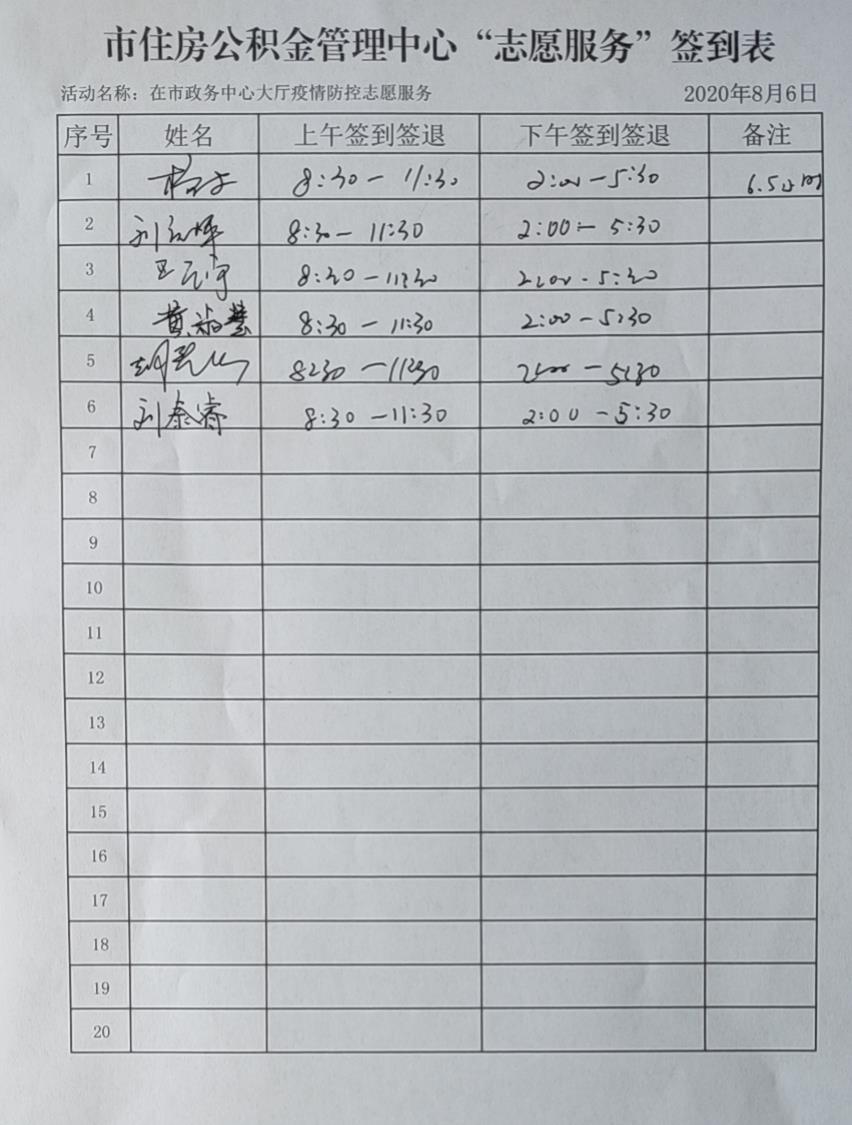 市住房公积金管理中心“志愿服务”签到表
活动名称：在市政务中心大厅疫情防控志愿服务 2020年8月6日
序号 姓名 上午签到签退 下午签到签退 备注
1 8:30-11:30 2:00-5:30 6.5小时
2 8:30-11:30 2:00-5:30
3 8:30-11:30 2:00-5:30
4 8:30-11:30 2:00-5:30
5 8:30-11:30 2:00-5:30
6 刘泰睿 8:30-11:30 2:00-5:30
7
8
9
10
11
12
13
14
15
16
17
18
19
20